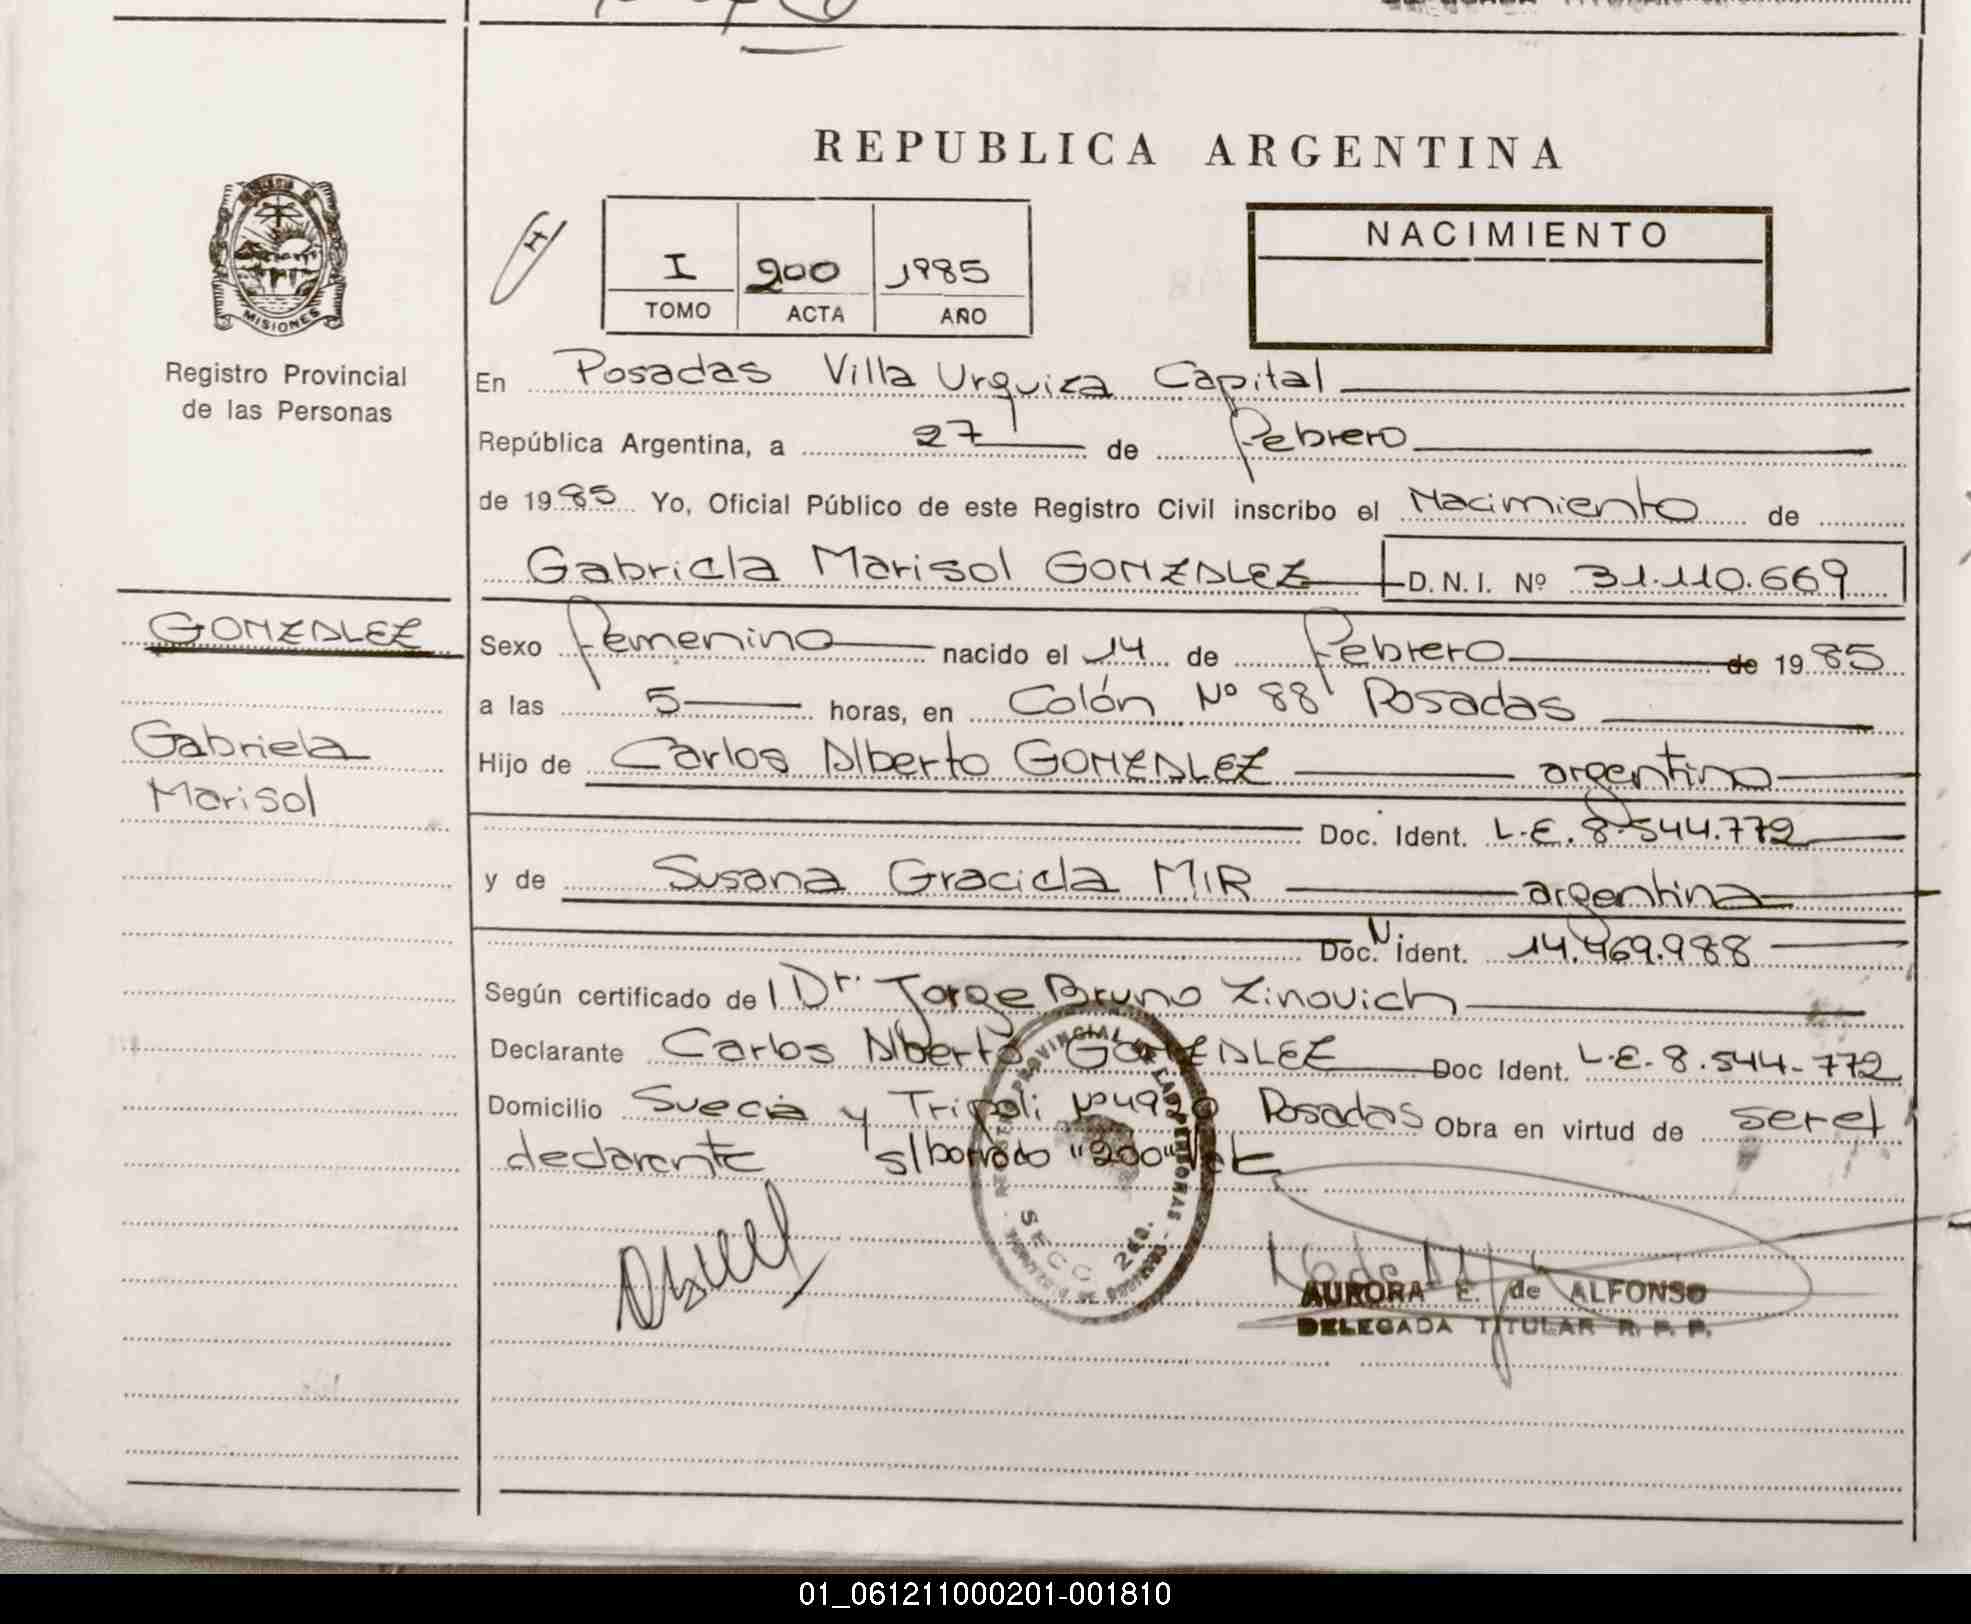 REPUBLICA ARGENTINA
MISIONES
Registro Provincial
de las Personas
I 200 1985
TOMO ACTA AÑO
NACIMIENTO
En Posadas Villa Urquiza Capital
República Argentina, a 27 de febrero
de 1985 Yo, Oficial Público de este Registro Civil inscribo el Nacimiento de
Gabriela Marisol GONZALEZ D.N.I. Nº 31.110.669
GONZALEZ
Gabriela
Marisol
Sexo femenino nacido el 14 de febrero de 1985
a las 5 horas, en Colón Nº 88 Posadas
Hijo de Carlos Alberto GONZALEZ argentino
Doc. Ident. L.E. 8.544.772
y de Susana Graciela MIR argentina
Doc. N Ident. 14.469.988
Según certificado de Dr. Jorge Bruno Zinovich
Declarante Carlos Alberto GONZALEZ Doc Ident. L.E. 8.544.772
Domicilio Suecia y Tripoli Nº 4920 Posadas Obra en virtud de ser el
declarante s/borrado "200" Vale
SECC. 2da.
AURORA E. de ALFONSO
DELEGADA TITULAR R. P. P.
01_061211000201-001810